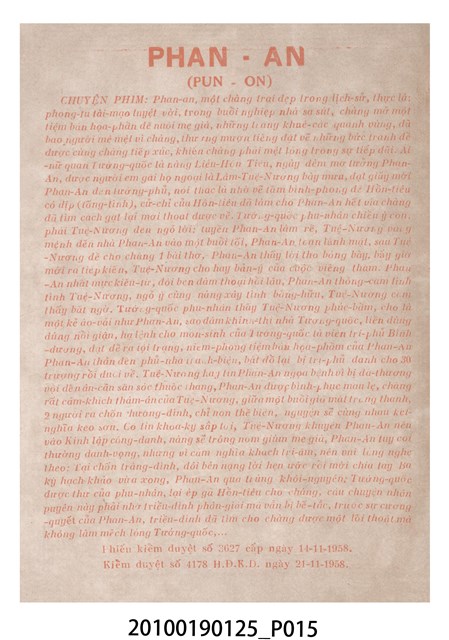 PHAN - AN
(PUN - ON)
CHUYỆN PHIM: Phan-an, một chàng trai đẹp trong lịch-sử, thực là
phong-lưu tài-mạo tuyệt vời, trong buổi nghiệp nhà sa sút, chàng mở một
tiệm bán họa-phẩm để nuôi mẹ già, những trang khuê-các quanh vùng, đã
bao người mê mệt vì chàng, thường mượn tiếng đặt vẽ những bức tranh để
được cùng chàng tiếp xúc, khiến chàng phải mệt lòng trong sự tiếp đãi. Ái-
nữ quan Tướng-quốc là nàng Liên-Hôn Tiêu, ngày đêm mơ tưởng Phan-
An, được người em gái họ ngoại là Lâm-Tuệ-Nương bày mưu, đặt giấy mời
Phan-An đến tướng-phủ, nói thác là nhờ vẽ tấm bình-phong để Hôn-tiêu
có dịp
đã tìm cách gạt lại mới thoát được về. Tướng-quốc phu-nhân chiều ý con,
phái Tuệ-Nương đến ngỏ lời; tuyên Phan-An làm rể, Tuệ-Nương vâng
mệnh đến nhà Phan-An vào một buổi tối, Phan-An toan lánh mặt, sau Tuệ
-Nương để cho chàng 1 bài thơ, Phan-An thấy lời thơ bóng bảy, bây giờ
mới ra tiếp kiến, Tuệ-Nương cho hay bản-ý của cuộc viếng thăm. Phan
tình Tuệ-Nương, ngỏ ý cùng nàng xây tình bằng-hữu, Tuệ-Nương cảm
thấy bất ngờ. Tướng-quốc phu-nhân thấy Tuệ-Nương phúc-bẩm, cho là
một kẻ áo-vải như Phan-An, sao dám khinh-thị nhà Tướng-quốc, liền đùng
đùng nổi giận, hạ lệnh cho môn-sinh của Tướng-quốc là viên tri-phủ Bình
-dương, đạt để ra tội trạng, niêm-phong tiệm bán họa-phẩm của Phan-An
Phan-An thân đến phủ-nha tranh-biện, bất đồ lại bị tri-phủ đánh cho 30
trượng rồi đuổi về. Tuệ-Nương hay tin Phan-An ngọa bệnh vì bị đả-thương
vội đến ân-cần săn sóc thuốc thang, Phan-An được bình-phục mau lẹ, chàng
rất cảm-khích thâm-ân của Tuệ-Nương, giữa một buổi gió mát trăng thanh,
2 người ra chốn Phương-đình, chỉ non thề biển, nguyện sẽ cùng nhau kết-
nghĩa keo sơn. Có tin khoa-kỳ sắp tới, Tuệ-Nương khuyên Phan-An nên
vào Kinh lập công-danh, nàng sẽ trông nom giùm mẹ già, Phan-An tuy coi
thường danh-vọng, nhưng vì cảm nghĩa khách tri-âm, nên vui lòng nghe
theo: Tại chốn tràng-đình, đôi bên nặng lời hẹn ước rồi mới chia tay. Ba
kỳ hạch khảo vừa xong, Phan-An quả trúng khôi-nguyên; Tướng-quốc
được thư của phu-nhân, lại ép gả Hôn-tiêu cho chàng, câu chuyện nhân
duyên này phải nhờ triều-đình phân-giải mà vẫn bị bế-tắc, trước sự cương
-quyết của Phan-An, triều-đình đã tìm cho chàng được một lối thoát mà
không làm mếch lòng Tướng-quốc,...
Phiếu kiểm duyệt số 3627 cấp ngày 14-11-1958.
Kiểm duyệt số 4178 H.Đ.K.D. ngày 21-11-1958.
20100190125_P015